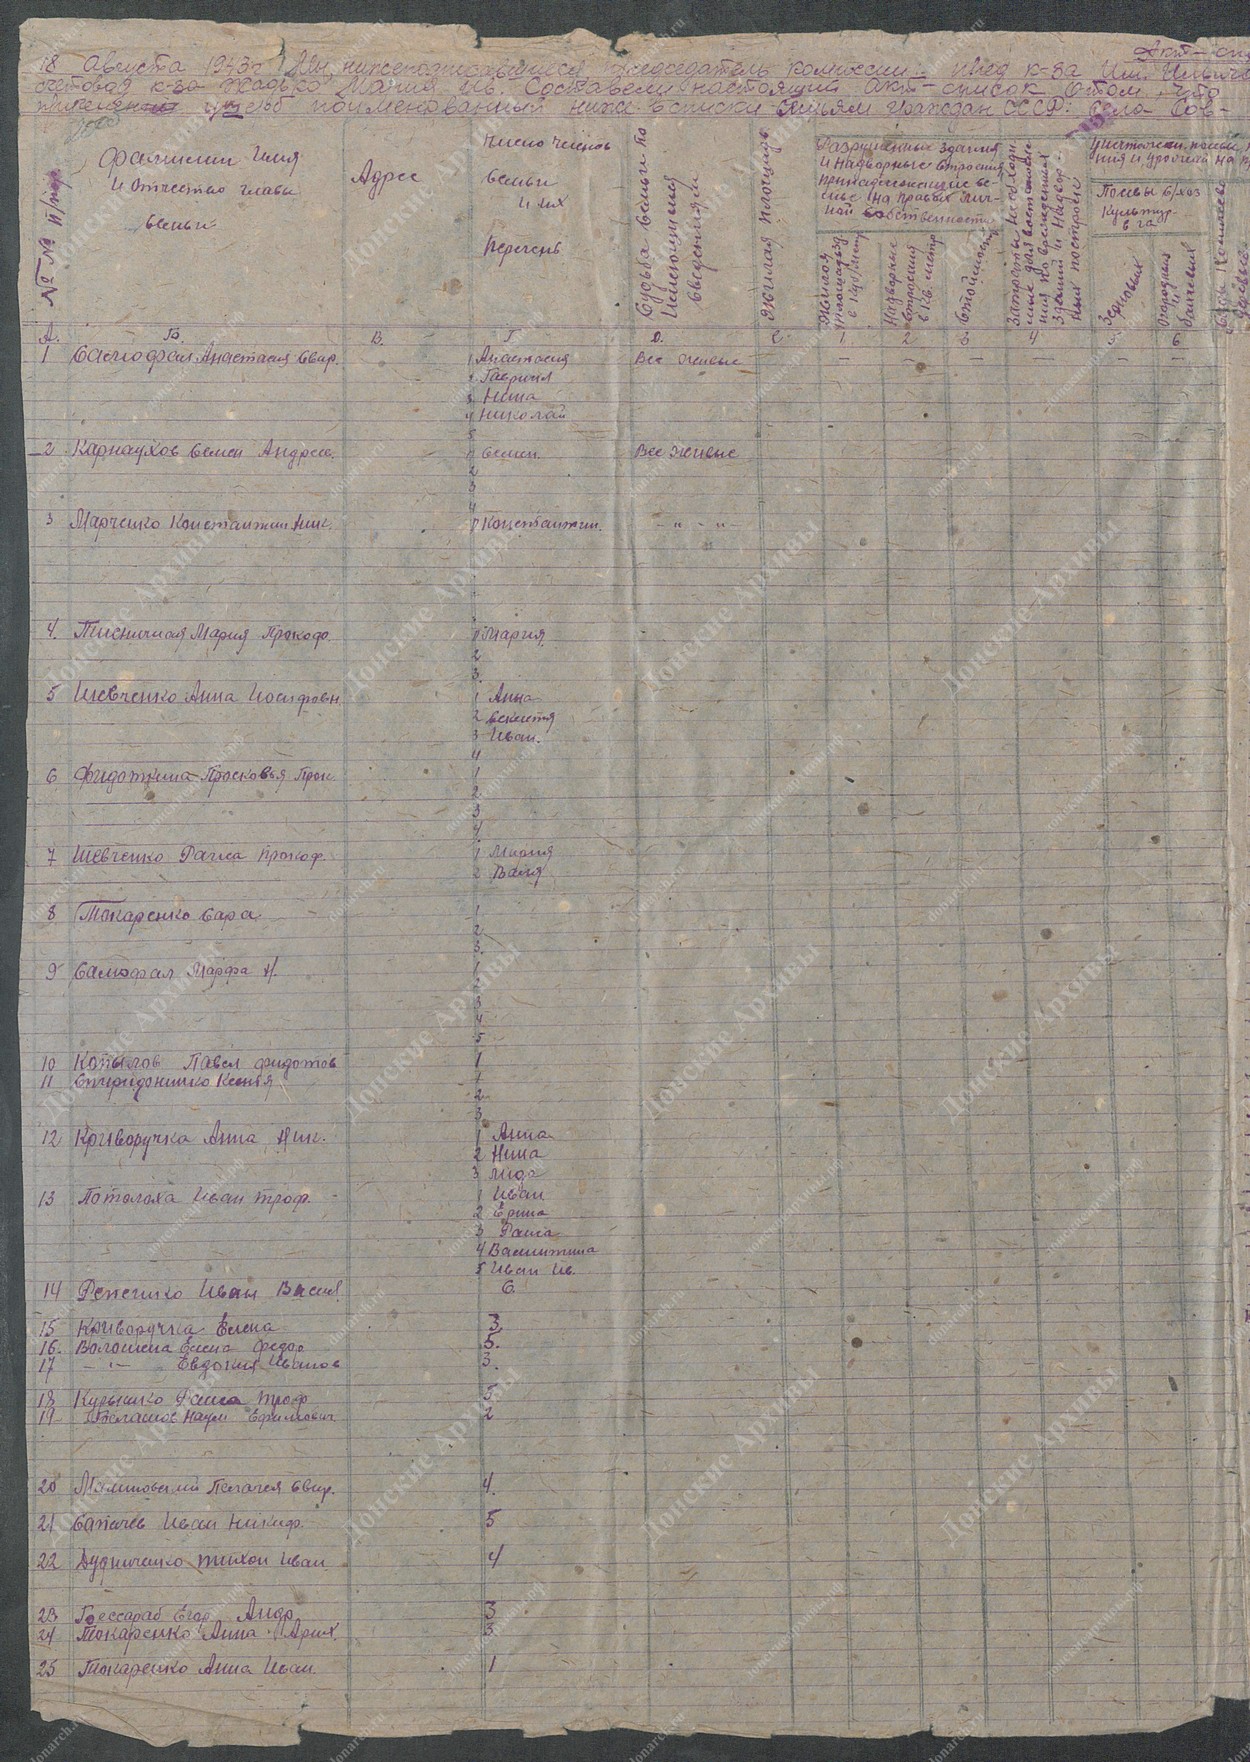 Акт-сп
18 Августа 1943г Мы, нижеподписавшиеся председатель комиссии - пред к-за Им. Ильича
счетовод к-за Жадько Мария Ив. Составели настоящий Акт-список о том, что
ущерб поименованный ниже в списки семьям граждан СССР: села Сов-
№ № п/пор.
Фамилии Имя
и Отчество главы
семьи
Адрес
Число членов
семьи
и их
перечень
Судьба семьи по
имеющимся
сведениям
Жилая площадь
Разрушенные здания
и надворные строения
принадлежащие се-
мье на правах лич-
ной собственности
Жилая
площадь
в куб/метр
Надворные
строения
в кв. метр
Стоимость
Затраты необходи-
мые для восстановле-
ния поврежденных
зданий и надвор-
ных построек
Посевы с/хоз
культур
в га
Зерновых
Огородных
и
бахчевых
А. Б. В. Г. Д. Е. 1. 2 3 4 5 6
1 Самофал Анастасия Свир. 1 Анастасия Все живые — — — — — —
2 Гавриил
3 Нина
4 Николай
5
2 Карнаухов Семен Андреев. 1 Семен. Все живые
2
3
4
3 Марченко Константин Ник. 1 Константин. - " - "
4. Писничная Мария Прокоф. 1 Мария
2
3.
5 Шевченко Анна Иосифовн 1 Анна
2
3 Иван.
4
6 Фидоткина Просковья Прок 1
2
3
4
7 Шевченко Раиса Прокоф. 1
2 Валя
8 Токаренко Сара 1
2
3.
9 Самофал Марфа Н. 1
2
3
4
5
10 Копылов Павел Фидотов 1
11 Спиридонинко Ксенья 1
2
3
12 Криворучка Анна Ник. 1 Анна
2 Нина
3 Лида
13 Потолоха Иван Троф. 1 Иван
2 Ерина
3 Раиса
4 Валинтина
5 Иван Ив.
14 Репешко Иван Васил. 6.
15 Криворучка Елена 3.
16. Волошина Елена Федор 5.
17 — " — Евдокия Иванов 3.
18 Курышко Раиса Троф 5.
19 Наум Ефимович 2
20 Малиновский Пелагея Свир. 4.
21 Сапачев Иван Никиф. 5
22 Дудниченко Тихон Иван 4
23 Бессараб Егор Андр 3
24 Токаренко Анна Арих. 3
25 Токаренко Анна Иван. 1
Донские Архивы
donarch.ru
донархив.рф